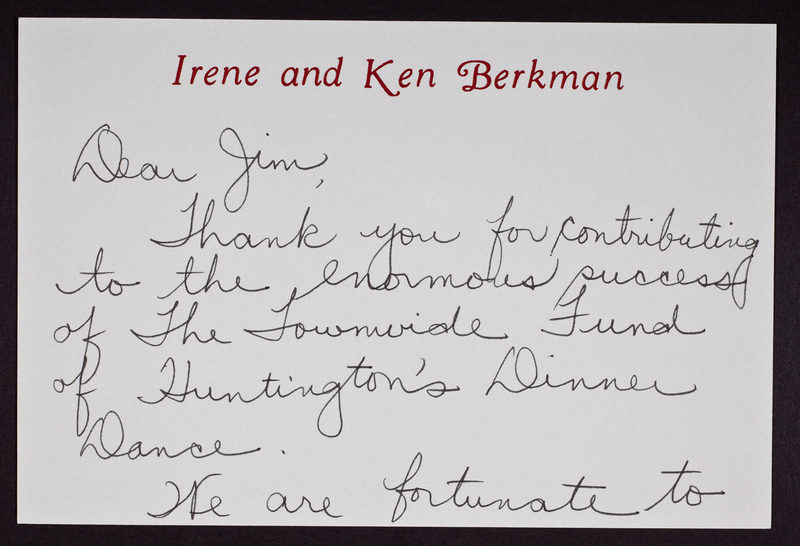 Irene and Ken Berkman
Dear Jim,
Thank you for contributing
to the enormous success
of The Townwide Fund
of Huntington's Dinner
Dance.
We are fortunate to